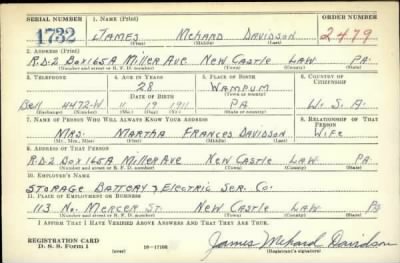 SERIAL NUMBER 1. NAME (Print) ORDER NUMBER
1732 JAMES MCKARD DAVIDSON 2479
(First) (Middle) (Last)
2. ADDRESS (Print)
R.D-2 BOX 165A MILLER AVE NEW CASTLE LAW PA.
(Number and street or R. F. D. number) (Town) (County) (State)
3. TELEPHONE 4. AGE IN YEARS 5. PLACE OF BIRTH 6. COUNTRY OF CITIZENSHIP
28 WAMPUM
DATE OF BIRTH (Town or county)
Bell 4472-W 11 19 1911 PA U. S. A.
(Exchange) (Number) (Mo.) (Day) (Yr.) (State or country)
7. NAME OF PERSON WHO WILL ALWAYS KNOW YOUR ADDRESS 8. RELATIONSHIP OF THAT PERSON
MRS. MARTHA FRANCES DAVIDSON WIFE
(Mr., Mrs., Miss) (First) (Middle) (Last)
9. ADDRESS OF THAT PERSON
R.D-2 BOX 165A MILLER AVE NEW CASTLE LAW PA
(Number and street or R. F. D. number) (Town) (County) (State)
10. EMPLOYER'S NAME
STORAGE BATTERY & ELECTRIC SER. CO.
11. PLACE OF EMPLOYMENT OR BUSINESS
113 NO. MERCER ST. NEW CASTLE LAW PA
(Number and street or R. F. D. number) (Town) (County) (State)
I AFFIRM THAT I HAVE VERIFIED ABOVE ANSWERS AND THAT THEY ARE TRUE.
REGISTRATION CARD
D. S. S. Form 1 (over) 16-17105
James McKard Davidson
(Registrant's signature)